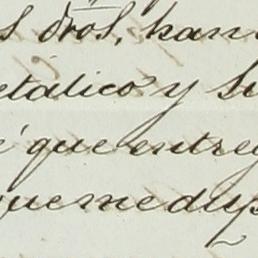 s dros, han
etálico y su
é que entreg
que me dup